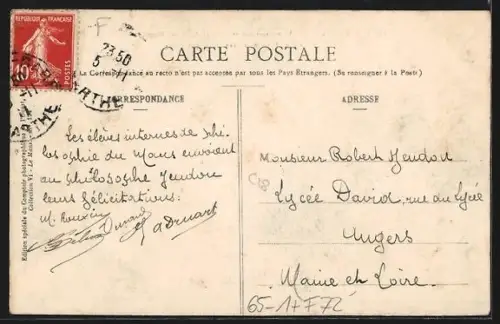 REPUBLIQUE FRANÇAISE
10c
POSTES
23 50
5
SARTHE
F
CARTE POSTALE
La Correspondance au recto n'est pas acceptée par tous les Pays Étrangers. (Se renseigner à la Poste)
CORRESPONDANCE
ADRESSE
Les élèves internes de Phi-
losophie du Mans envoient
au philosophe Jeudon
leurs félicitations:
Monsieur Robert Jeudon
Lycée David, rue du Lycée
Angers
Maine et Loire.
65-1+F72
Edition spéciale du Comptoir photographique
Collection VL - Le Mans